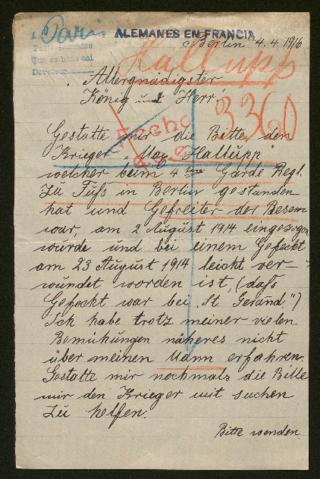 Paris
ALEMANES EN FRANCIA
Berlin 4.4.1916
Kallupp
Allergnädigster
König und Herr
3360
Gestatte mir die Bitte, den
Krieger Max Kallupp
welcher beim 4 ten Garde Regl.
zu Fuß in Berlin gestanden
hat und Gefreiter der Reserv
war, am 2 August 1914 eingezogen
wurde und bei einem Gefecht
am 23 August 1914 leicht ver-
wundet worden ist, (das
Gefecht war bei „St. Gerand")
Ich habe trotz meiner vielen
Bemühungen näheres nicht
über meinen Mann erfahren.
Gestatte mir nochmals die Bitte
mir den Krieger mit suchen
zu helfen.
Bitte wenden